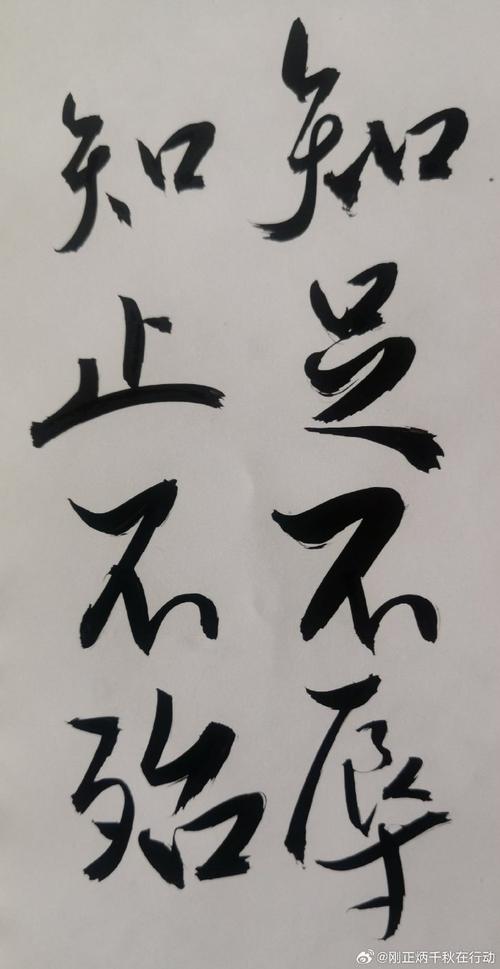 知足不辱
知止不殆
@刚正炳千秋在行动